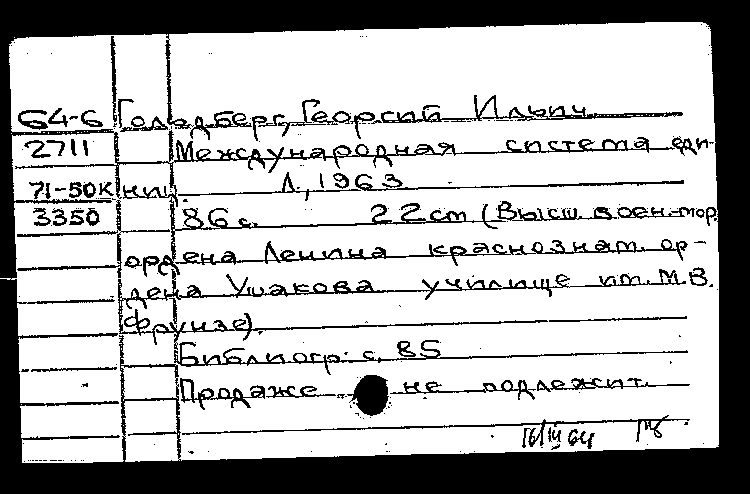 64-6 Гольдберг, Георгий Ильич.
2711 Международная система еди-
71-50К ниц. Л., 1963
3350 86 с. 22 cm (Высш. воен.-мор.
ордена Ленина краснознам. ор-
дена Ушакова училище им. М.В.
Фрунзе).
Библиогр: с. 85
Продаже не подлежит.
16/III 64